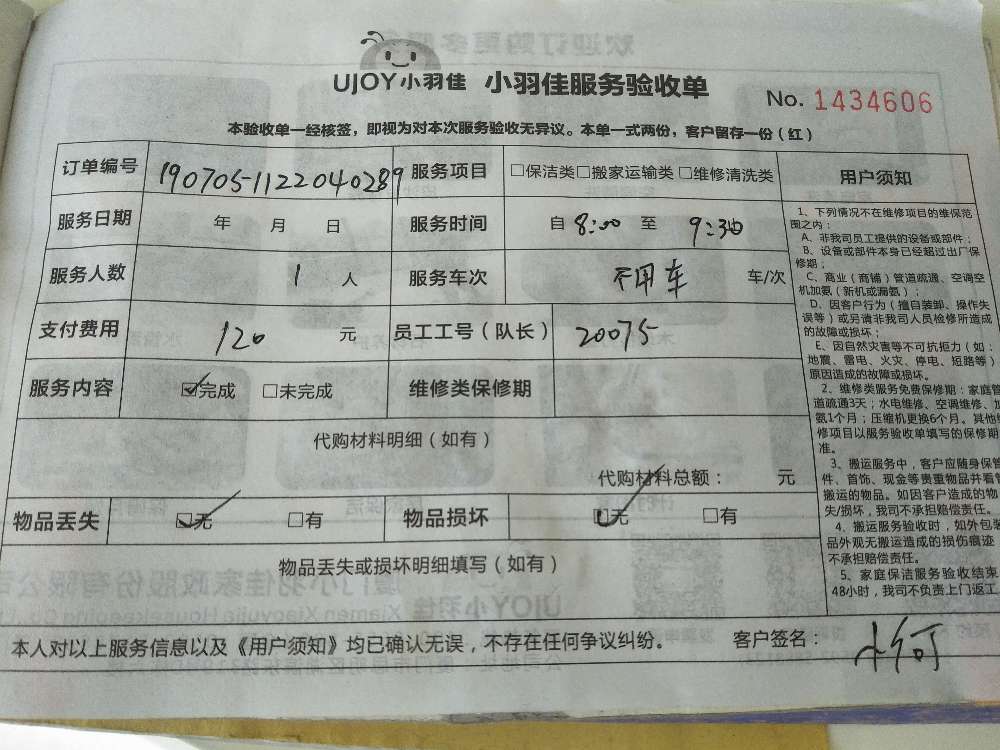 UJOY小羽佳 小羽佳服务验收单 No. 1434606
本验收单一经核签，即视为对本次服务验收无异议。本单一式两份，客户留存一份（红）
订单编号 190705-1122040289 服务项目 □保洁类□搬家运输类 □维修清洗类
服务日期 年 月 日 服务时间 自 8:00 至 9:30
服务人数 1 人 服务车次 不用车 车/次
支付费用 120 元 员工工号（队长） 20075
服务内容 ☑完成 □未完成 维修类保修期
代购材料明细（如有）
代购材料总额： 元
物品丢失 ☑无 □有 物品损坏 ☑无 □有
物品丢失或损坏明细填写（如有）
用户须知
1、下列情况不在维修项目的维保范
围之内：
A、非我司员工提供的设备或部件；
B、设备或部件本身已经超过出厂保
修期；
C、商业（商铺）管道疏通、空调空
机加氨（新机或漏氨）；
D、因客户行为（擅自装卸、操作失
误等）或另请非我司人员检修所造成
的故障或损坏；
E、因自然灾害等不可抗拒力（如：
地震、雷电、火灾、停电、短路等）
原因造成的故障或损坏。
2、维修类服务免费保修期：家庭管
道疏通3天；水电维修、空调维修、加
氨1个月；压缩机更换6个月。其他
修项目以服务验收单填写的保修期
准。
3、搬运服务中，客户应随身保管
件、首饰、现金等贵重物品并看管
搬运的物品。如因客户造成的物
失/损坏，我司不承担赔偿责任。
4、搬运服务验收时，如外包装
品外观无搬运造成的损伤痕迹
不承担赔偿责任。
5、家庭保洁服务验收结束
48小时，我司不负责上门返工
本人对以上服务信息以及《用户须知》均已确认无误，不存在任何争议纠纷。 客户签名： 小何